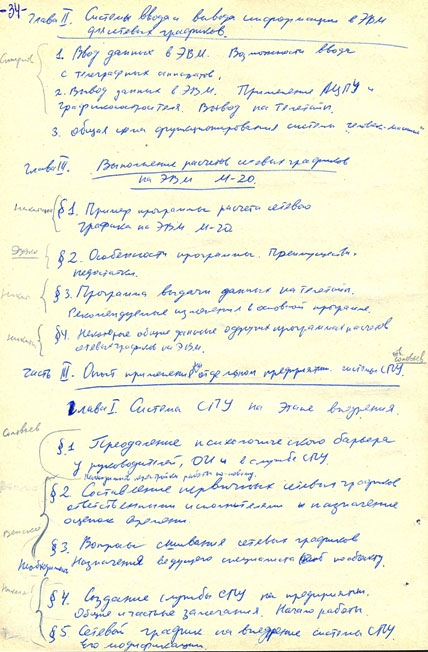 -34-
Глава II. Системы ввода и вывода информации в ЭВМ
для сетевых графиков.
1. Ввод данных в ЭВМ. Возможности ввода
с телеграфных аппаратов.
2. Вывод данных в ЭВМ. Применение АЦПУ и
графикопостроителя. Вывод на телетайп.
3. Общая схема функционирования системы "человек-машина"
Глава III. Выполнение расчетов сетевых графиков
на ЭВМ М-20.
§ 1. Пример программы расчета сетевого
графика на ЭВМ М-20
§ 2. Особенности программы. Преимущества,
недостатки.
§ 3. Программа выдачи данных на телетайп.
Рекомендуемые изменения в основной программе.
§4. Некоторые общие данные о других программах расчетов
сетевых графиков на ЭВМ.
Соловьев
Часть III. Опыт применения на отдельном предприятии системы СПУ
Глава I Система СПУ на этапе внедрения.
Соловьев
§ 1 Преодоление психологического барьера
у руководителей, ОИ и в службе СПУ.
§ 2. Составление первичных сетевых графиков
ответственными исполнителями и назначение
оценок времени.
§ 3. Вопросы сшивания сетевых графиков
Необходимость назначения ведущего специалиста по объекту.
§ 4. Создание службы СПУ на предприятии.
Общие и частные замечания. Начало работы.
§ 5 Сетевой график на внедрение системы СПУ.
Его модификации.